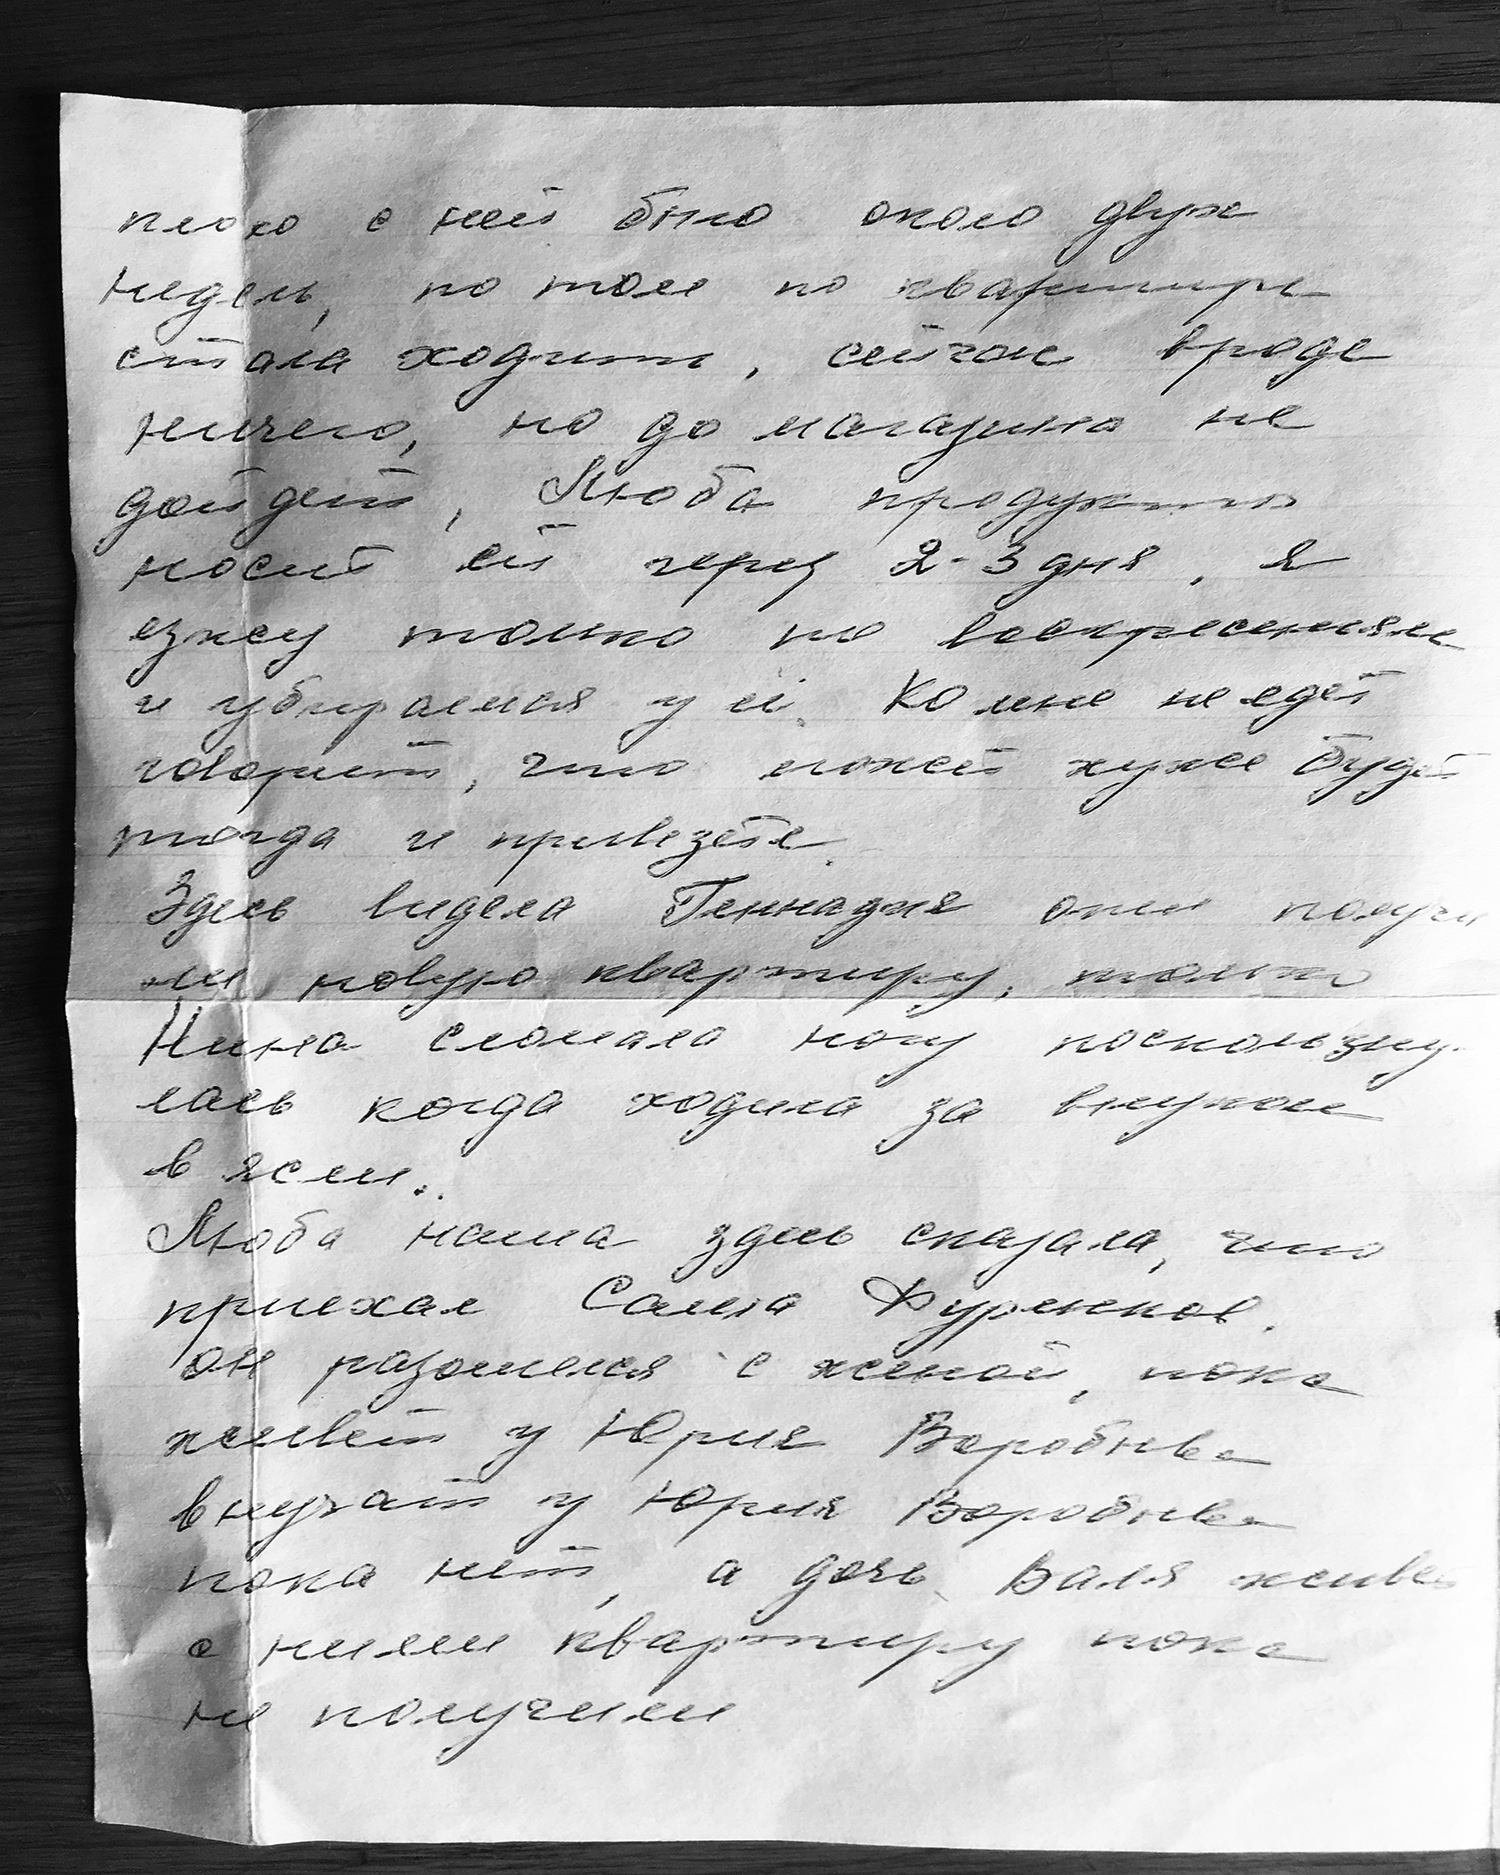 плохо с ней было около двух
недель, потом по квартире
стала ходить, сейчас вроде
ничего, но до магазина не
дойдет, Люба продукты
носит ей через 2-3 дня, я
езжу только по воскресеньям
и убираемся у ей. Ко мне не едет
говорит, что может хуже будет
тогда и привезете.
Здесь видела Геннадия они получи
ли новую квартиру, только
Нина сломала ногу поскользну-
лась когда ходила за внуком
в ясли.
Люба наша здесь сказала, что
приехал Саша Фуренков.
он разошелся с женой, пока
живёт у Юрия Воробьева
внучат у Юрия Воробьева
пока нет, а дочь Валя живет
с ними квартиру пока
не получили